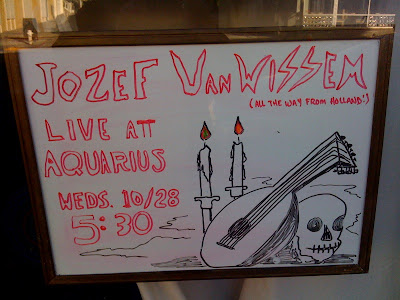 JOZEF VAN WISSEM
(ALL THE WAY FROM HOLLAND!)
LIVE AT
AQUARIUS
WEDS. 10/28
5:30